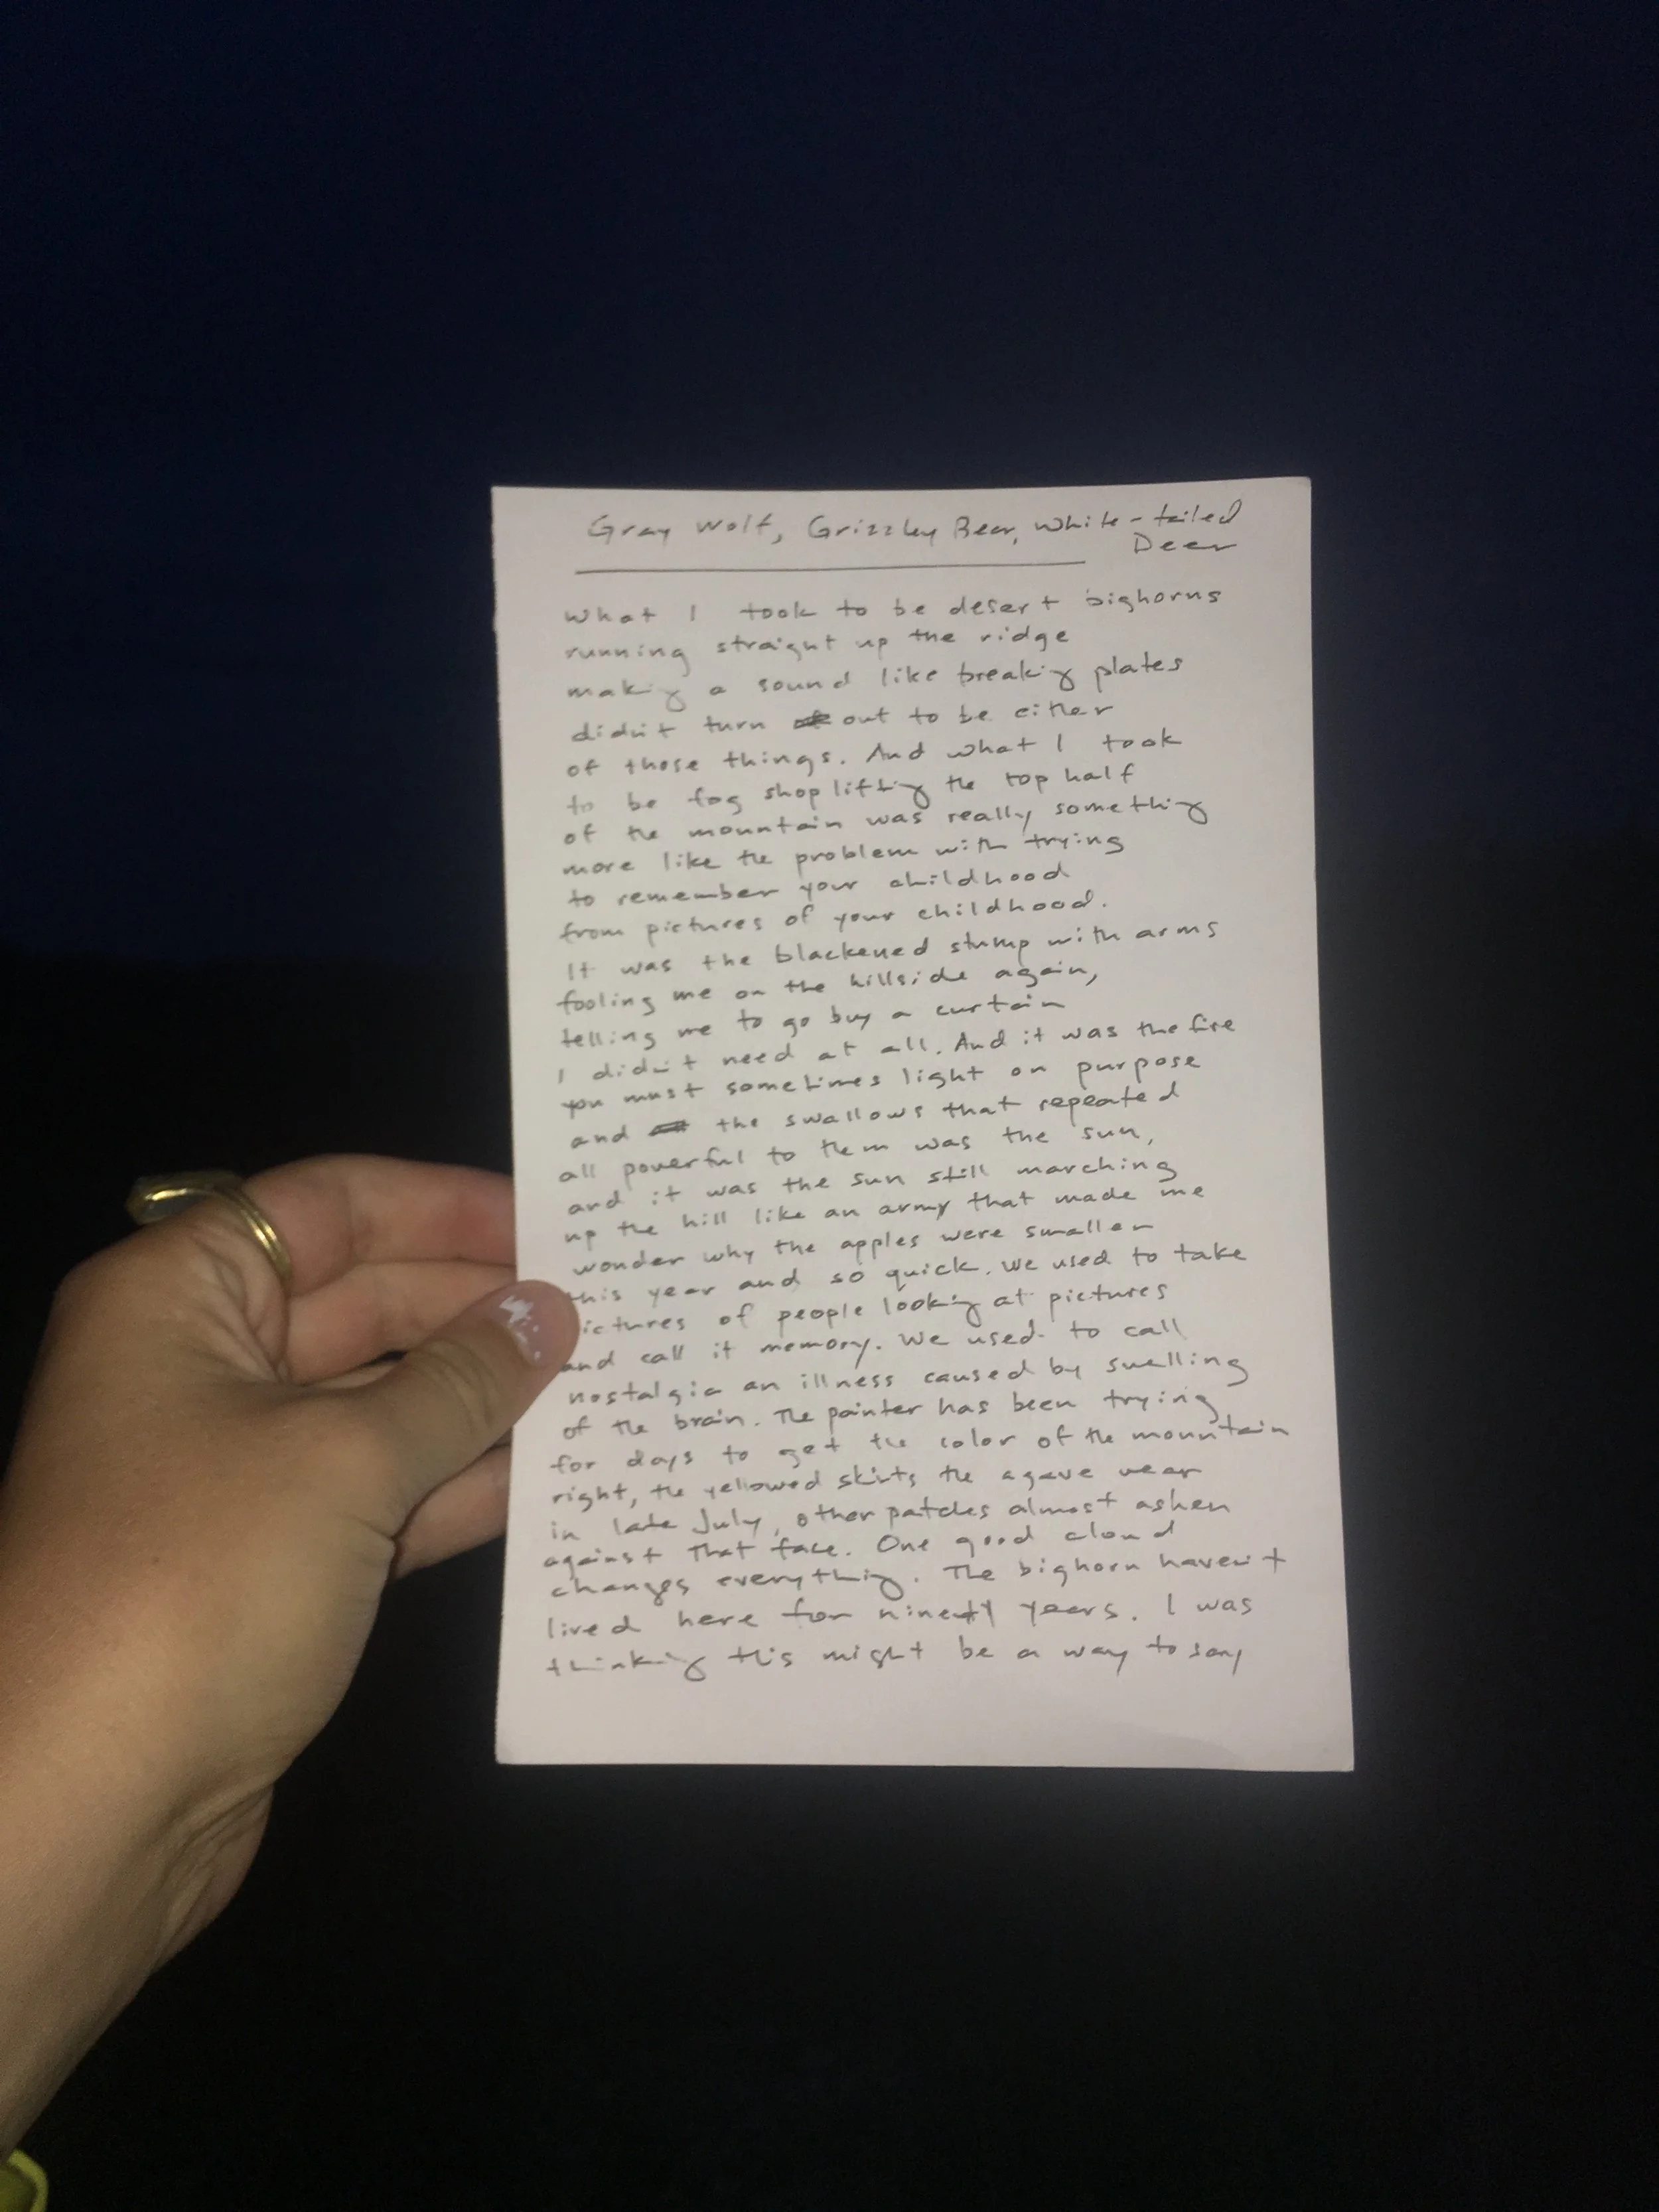 Gray Wolf, Grizzley Bear, White-tailed
Deer
What I took to be desert bighorns
running straight up the ridge
making a sound like breaking plates
didn't turn out to be either
of those things. And what I took
to be fog shoplifting the top half
of the mountain was really something
more like the problem with trying
to remember your childhood
from pictures of your childhood.
It was the blackened stump with arms
fooling me on the hillside again,
telling me to go buy a curtain
I didn't need at all. And it was the fire
you must sometimes light on purpose
and the swallows that repeated
all powerful to them was the sun,
and it was the sun still marching
up the hill like an army that made me
wonder why the apples were smaller
this year and so quick. We used to take
ictures of people looking at pictures
and call it memory. We used to call
nostalgia an illness caused by swelling
of the brain. The painter has been trying
for days to get the color of the mountain
right, the yellowed skirts the agave wear
in late July, other patches almost ashen
against that face. One good cloud
changes everything. The bighorn haven't
lived here for ninety years. I was
thinking this might be a way to say